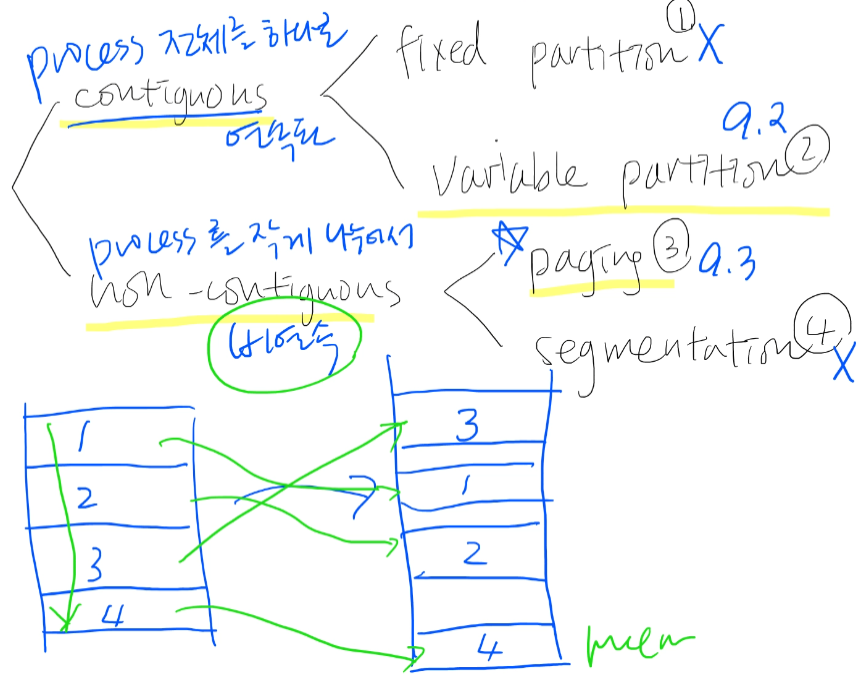 process 전체를 하나로
contiguous
연속된
fixed partition ① X
9.2
variable partition ②
process를 작게 나누어서
non-contiguous
비연속
☆ paging ③ 9.3
segmentation ④ X
1
2
3
4
3
1
2
4
mem